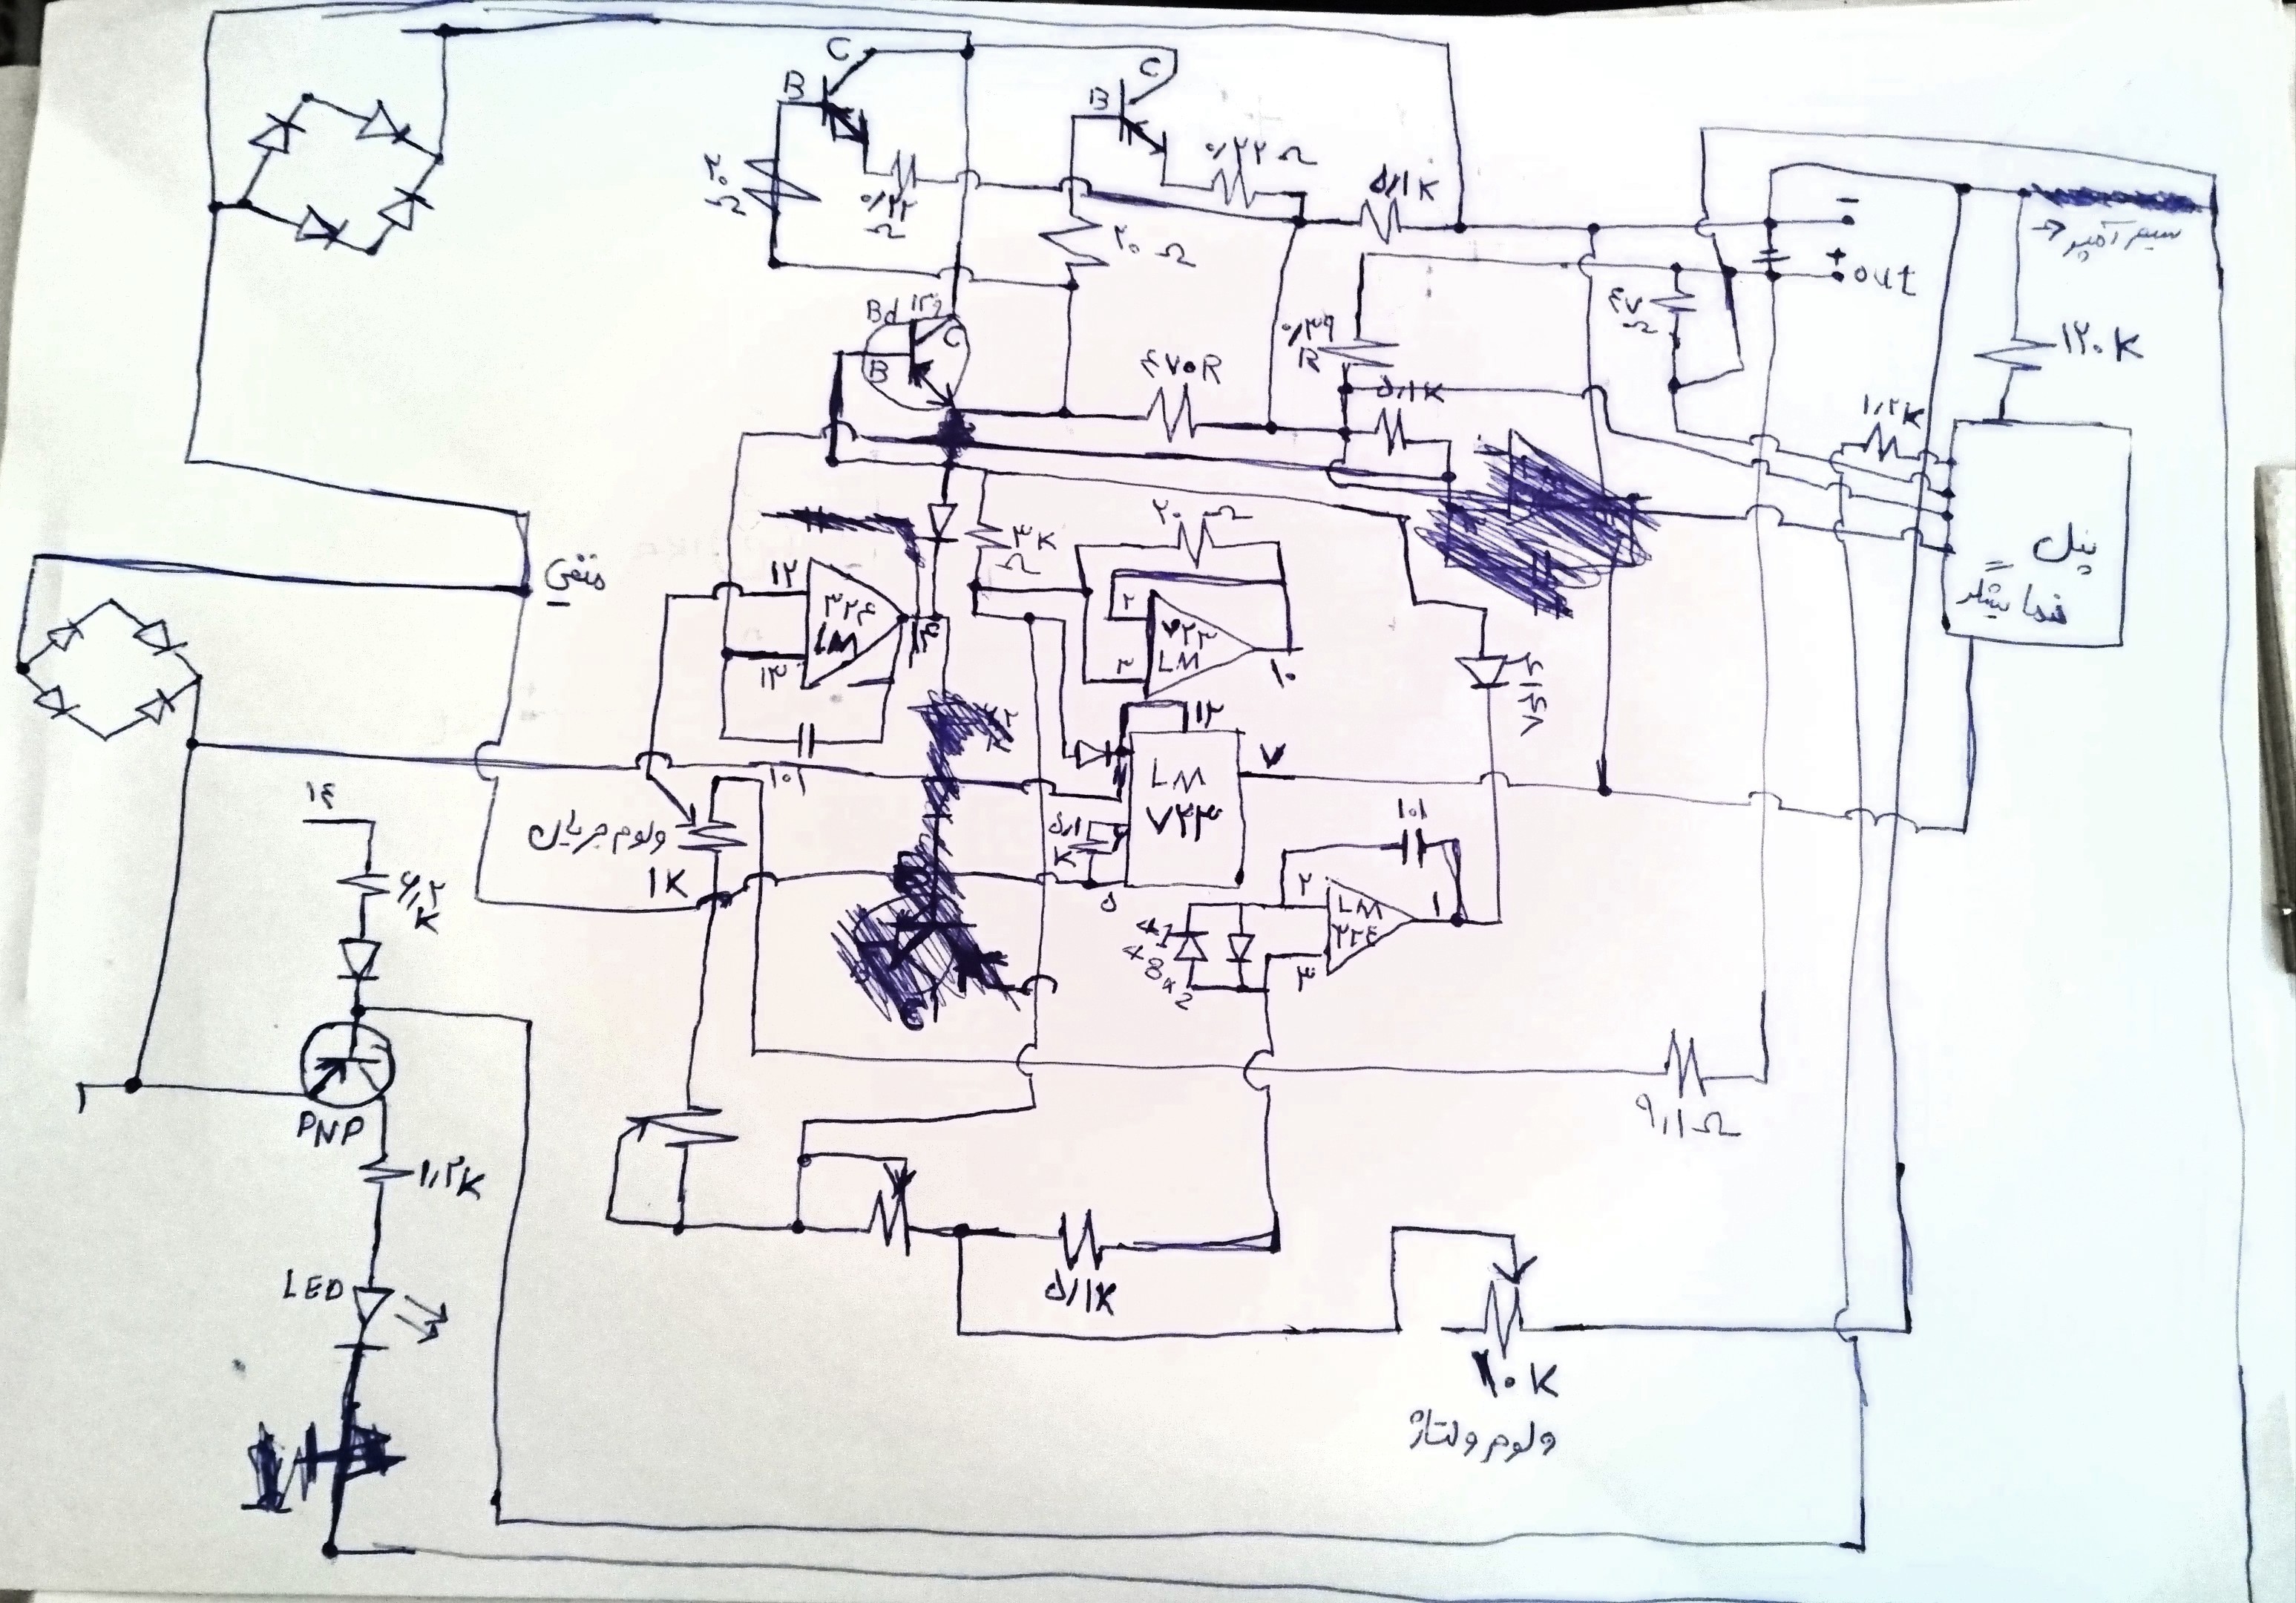 C
B
C
B
۲۰
Ω
۰/۲۲
Ω
۰/۲۲ Ω
۵/۱K
۲۰ Ω
-
+
out
سیم آمپر
۴۷
Ω
۱۲۰K
Bd ۱۳۹
C
B
۴۷۰R
۰/۳۹
R
۵/۱K
۱,۲K
پنل
نمایشگر
منفی
-
۱۲
۳۲۴
LM
۱۳
۱۴
۳K
Ω
۲۰ Ω
۲
۷۲۳
LM
۳
۱۰
۱۲
LM
۷۲۳
۷
۵/۱
K
۵
۱۰۱
ولوم جریان
۱K
۱۴
۶,۲
K
PNP
۱,۲K
LED
۱۰۱
۲
LM
۳۲۴
۱
۳
۹,۱Ω
۵/۱K
۱۰K
ولوم ولتاژ